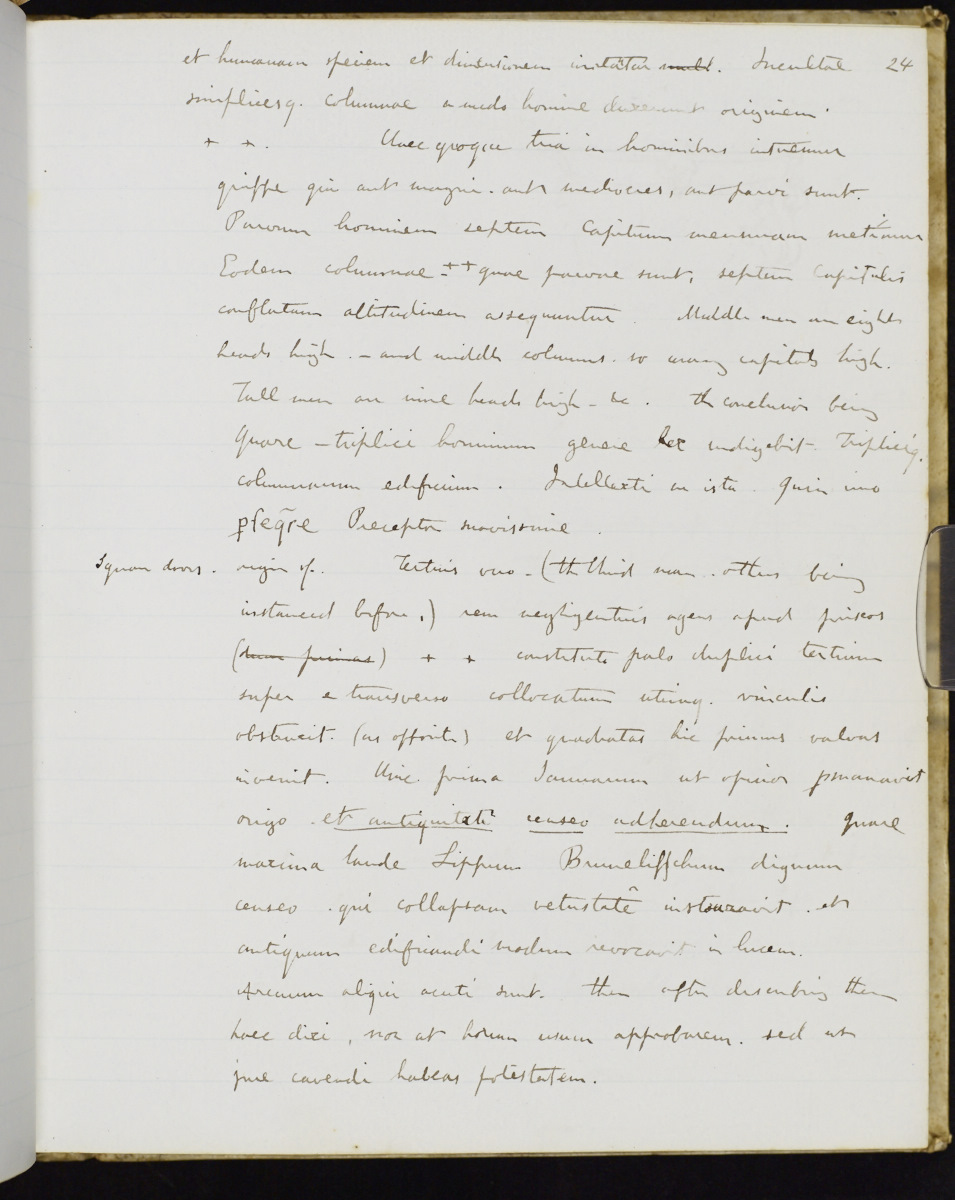 et humanam speciem et dimensionem imitatur. Incultae 24
simplicesq. columnae a nudo homine duxerunt originem.
+ + . Haec quoque tria in hominibus intuemur
quippe qui aut magni. aut mediocres, aut parvi sunt.
Parvum hominem septem capitum mensuram metimur
Eodem columnae - ++ quae parvae sunt, septem capitulis
conflatam altitudinem assequuntur. Middle men are eight
heads high. - and middle columns. so many capitals high.
Tall men are nine heads high - &c. the conclusion being
Quare - triplici hominum genere indigebit. tripliciq.
columnarum edificium. Intellexti an ista. Quin imo
p̱seq̄re Preceptor suavissime.
Square doors. origin of. Tertius vero - (the third man. others being
instanced before.) rem negligentius agens apud priscos
(dum primas) + + constituto palo duplici tertium
super e transverso collocatum utrinq. vinculis
obstrucit. (as opposite) et quadratas hic primus valvas
invenit. Hinc prima Januarum ut opinor p̱manavit
origo. et antiquitati censeo adherendum. Quare
maxima laude Lippum Brunelisschum dignum
censeo. qui collapsam vetustatē instauravit. et
antiquum edificandi modum revocavit in lucem.
Arcuum aliqui acuti sunt. then after describing them
haec dixi, non ut horum usum approbarem. sed ut
jure cavendi habeas potestatem.